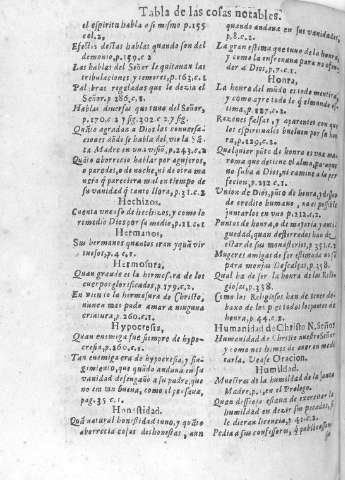 Tabla de las cosas notables.
el espiritu habla a si mismo p.155
col.2,
Efectos destas hablas quando son del
demonio, p.159.c.2
Las hablas del Señor le quitan las
tribulaciones y temores, p.163.c.1
Palabras regaladas que le dezia el
Señor.p.286.c.1.
Hablas diuersas que tuuo del Señor,
p.170.c 2 y sig. 202 c 2 y sig.
Quãto agradas a Dios las conuersa-
ciones
Madre en una visiõ, p.243.c.2
Quãto aborrecio hablar por agujeros,
o paredes, o de noche, ni de otra ma
nera q̃ pareciera mal en tiempo de
su vanidad q̃ tanto llora, p.31.c.2
Hechizos.
Cuenta vn caso de hechizos, y como lo
remedio Dios por su medio, p.22.c.1
Hermanos.
Sus hermanos quantos eran y quã vir
tuosos, p.4 c.1.
Hermosura.
Quan grande es la hermosura de los
cuerpos glorificados, p.179,c.2.
En viendo la hermosura de Christo,
nunca mas pudo amar a ninguna
criatura, p.260.c.1.
Hypocresia,
Quan enemiga fue siempre de hypo-
cresia, p.260.c.1.
Tan enemiga era de hypocresia, y fin-
gimiento, que quãdo andaua en su
vanidad desengaño a su padre, que
no era tan buena, como el pensaua,
pag.35 c.1.
Honestidad.
Quã natural honestidad tuuo, y quãto
aborrecia cosas deshonestas, aun
quando andaua en sus vanidades,
p.8.c.2.
La gran estima que tuuo de la honra,
y como la enfrenaua para no ofen-
der a Dios, p.7.c.1.
Honra,
La honra del mũdo es todo mentira,
y como ayre todo lo q̃ el mundo es-
tima, p.127.c.2.
Razones falsas, y aparentes con que
los espirituales bueluen por su hon
ra, p.129.c.2.
Qualquier pũto de honra es vna ma-
roma que detiene el alma, para que
no suba a Dios, ni camine a la per-
feccion, p.212 c.1.
Vnion de Dios, pũto de honra, y deseo
de credito humano, no es posible
juntarlos en vno p.212.c.2.
Puntos de honra, o de mayoria y anti-
guedad, quan desterrados han de
estar de sus monasterios, p.351.c.2
Mugeres amigas de ser estimadas no son
para monjas Descalças, p.358.
Qual ha de ser la honra de las Religio-
sas, p.358.
Como los Religiosos han de tener de-
baxo de los pies todos los puntos de
honra, p.44.c.2.
Humanidad de Christo N. Señor.
Humanidad de Christo nuestro Señor
y como nos hemos de auer en medi-
tarla. Vease Oracion.
Humildad.
Muestras de la humildad de la santa
Madre, p.1, en el Prologo.
Quan deseosa estaua de exercitar la
humildad en dezir sus pecados, si
le dieran licencia, p 41.c.2.
Pedia a sus confessores, q̃ publicassen